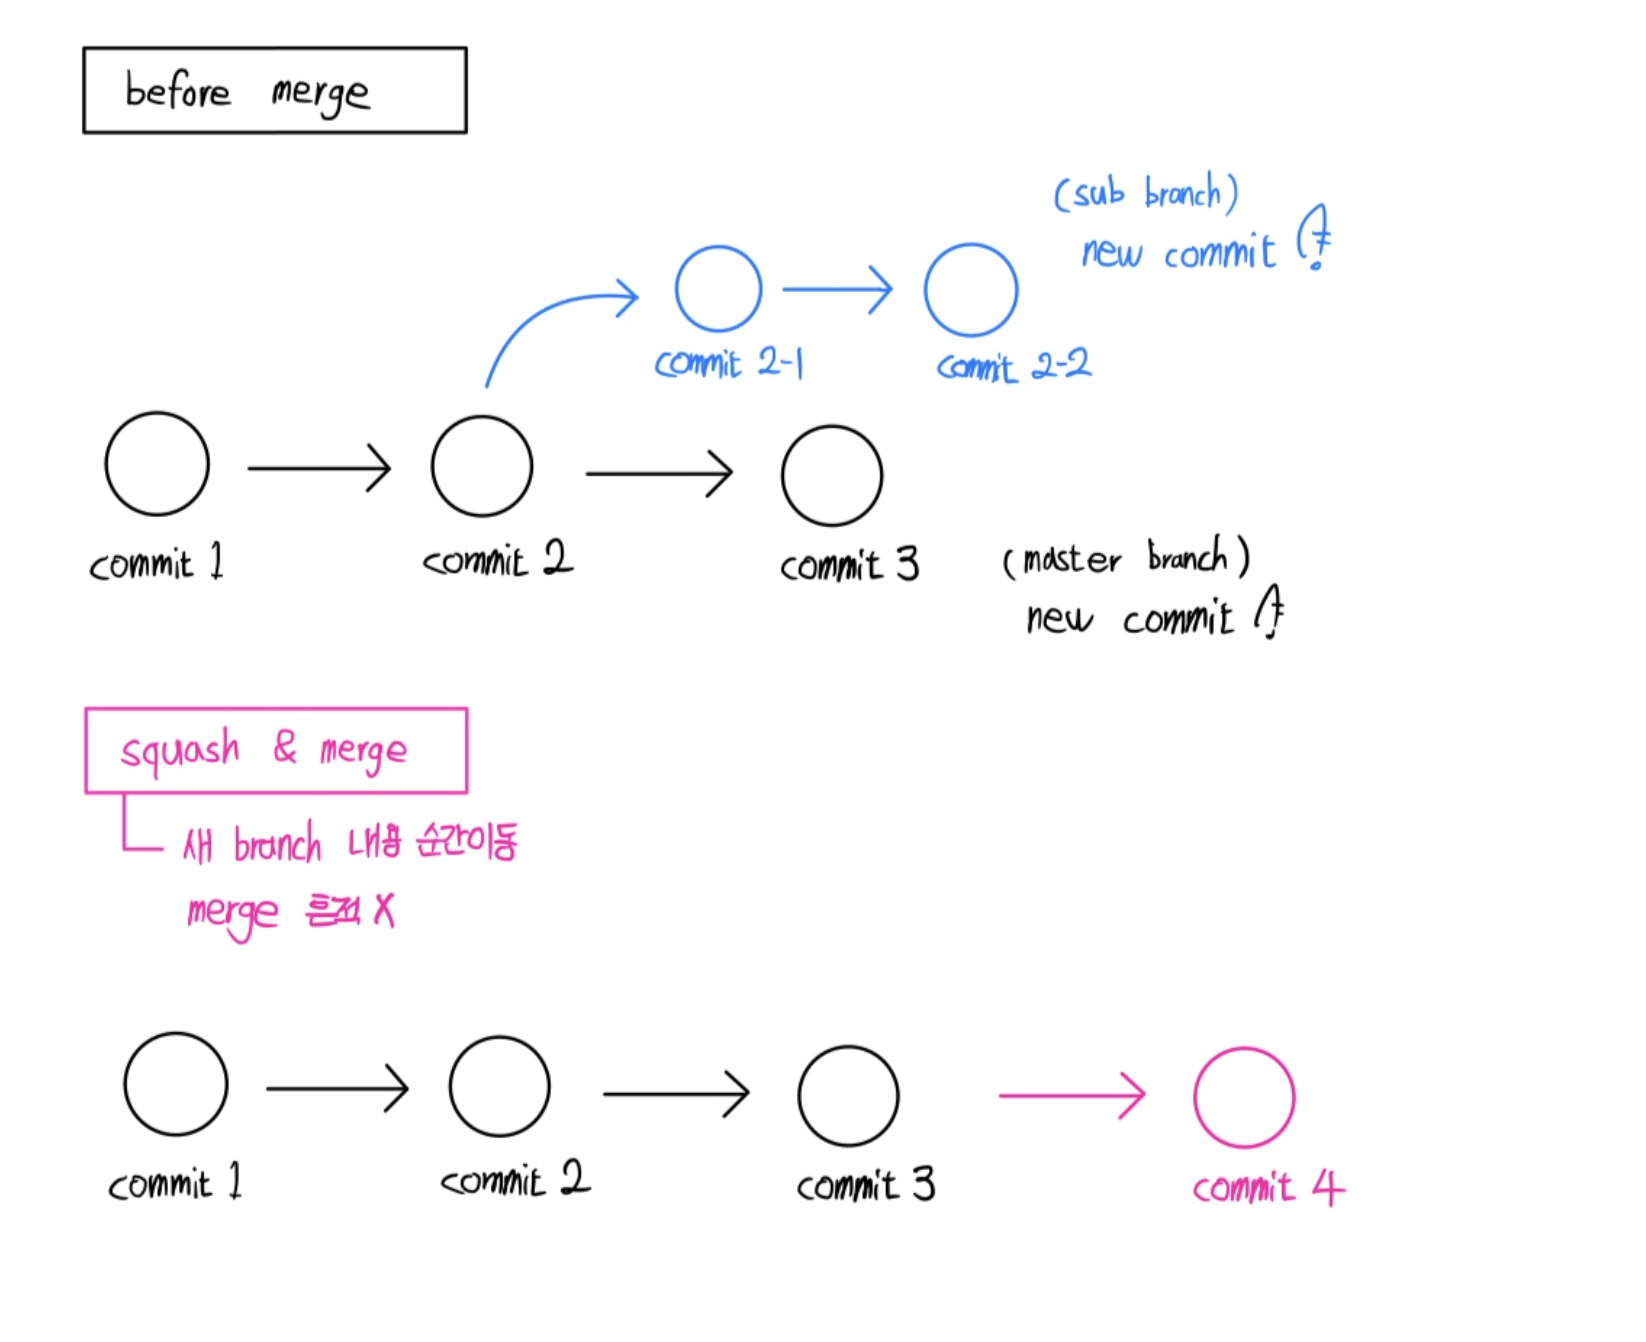 before merge
(sub branch)
new commit
commit 2-1
commit 2-2
commit 1
commit 2
commit 3
(master branch)
new commit
squash & merge
새 branch 내용 순간이동
merge 흔적 X
commit 1
commit 2
commit 3
commit 4